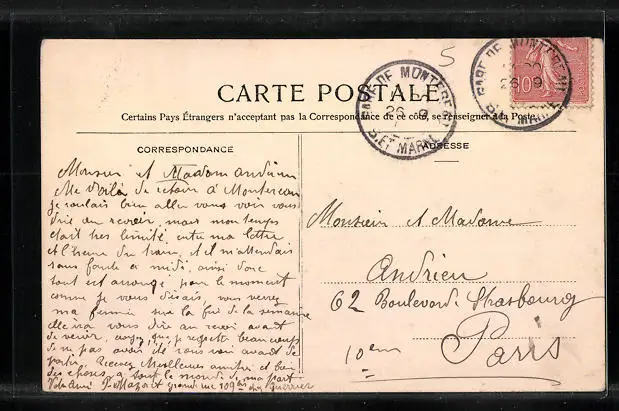 5
GARE DE MONTEREAU
26 9
S. ET MARNE
GARE DE MONTEREAU
26 9
S. ET MARNE
10
CARTE POSTALE
Certains Pays Étrangers n'acceptent pas la Correspondance de ce côté, se renseigner à la Poste.
CORRESPONDANCE
ADRESSE
Monsieur et Madam andrieu
Me Voilà de retour à Montereau
je voulais bien aller vous voir vous
dire au revoir, mais mon temps
etait tres limité, entre ma lettre
et l'heure du train, et il m'attendais
sans faute a midi, ainsi donc
tout est arrangé pour le moment
comme je vous disais, vous verrez
ma femme sur la fin de la semaine
elle ira vous dire au revoir avant
de venir, croyez que je regrette beaucoup
de ne pas avoir été vous voir avant de
partir, Recevez Meilleures amitiés et bien
des choses a tout le monde de ma part
Votre Ami P. grande rue 109 chez Guerrier
Monsieur et Madame
Andrieu
62 Boulevard Strasbourg
Paris
10em